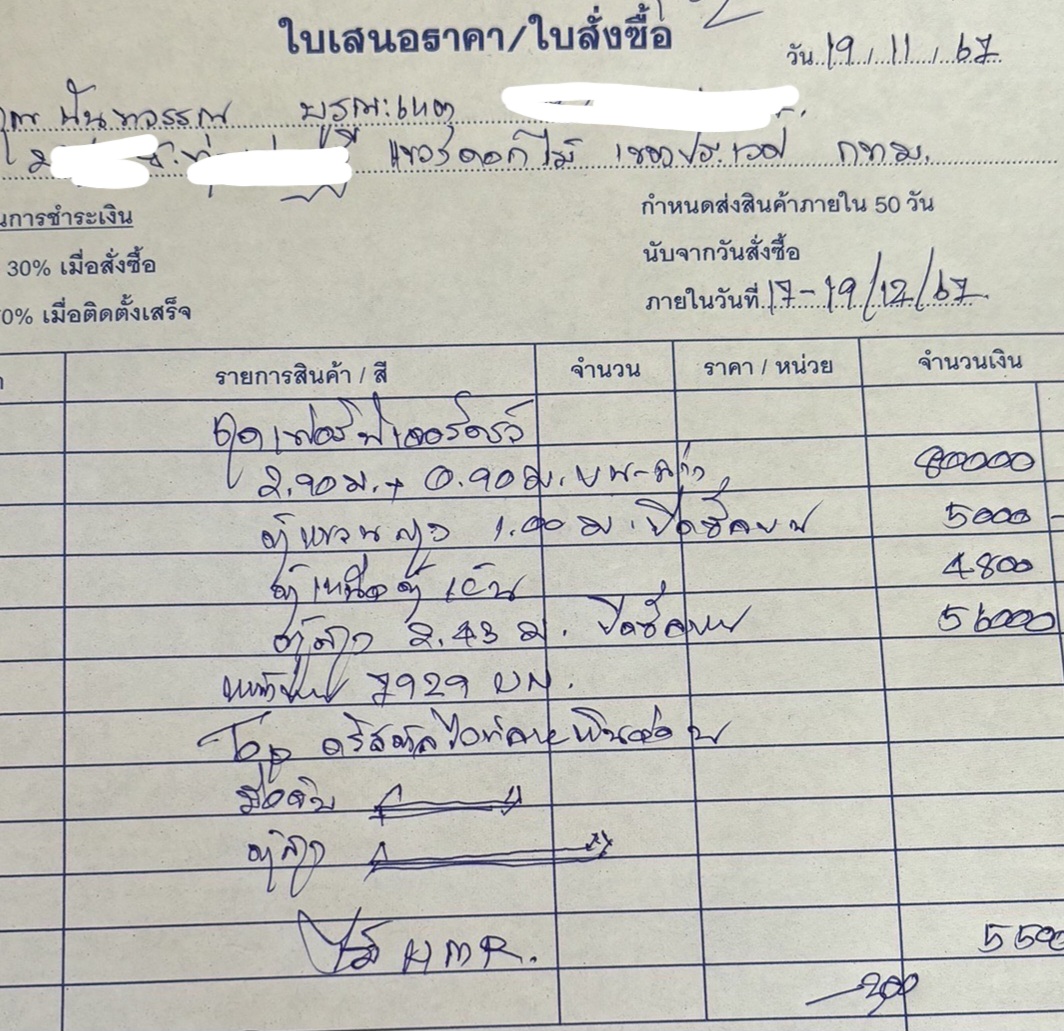 ใบเสนอราคา/ใบสั่งซื้อ
วัน 19 / 11 / 67
นันทวรรณ บูรณะเหตุ
แขวงดอกไม้ เขตประเวศ กทม.
นการชำระเงิน
กำหนดส่งสินค้าภายใน 50 วัน
30% เมื่อสั่งซื้อ
นับจากวันสั่งซื้อ
0% เมื่อติดตั้งเสร็จ
ภายในวันที่ 17-19/12/67
รายการสินค้า / สี จำนวน ราคา / หน่วย จำนวนเงิน
2.90 ม. + 0.90 ม. บน-ล่าง 80000
ตู้แขวนสูง 1.00 ม. ปิดชิดบน 5000
ตู้เหนือตู้เย็น 4800
ตู้สูง 2.43 ม. ปิดชิดบน 56000
หน้าบาน 7929 บน.
Top
มือจับ
ตู้สูง
ไม้ HMR. 550
200